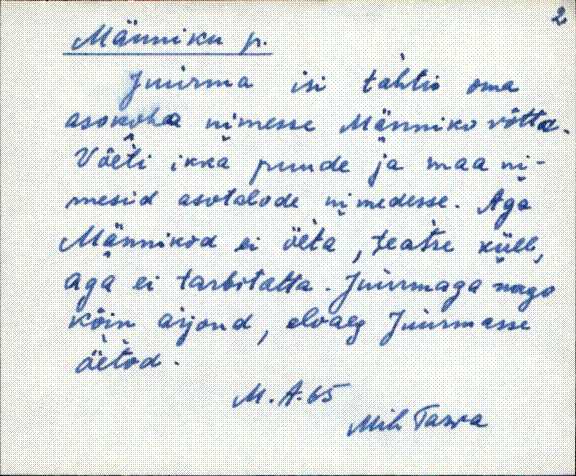 2
Männiku p.
Juurma isi tahtis oma
asokoha nimesse Männiko võtta.
Võeti ikka puude ja maa ni-
mesid asotalode nimedesse. Aga
Männikod ei öeta, teatse küll,
aga ei tarbitatta. Juurmaga nago
kõin arjond, eloaeg Juurmasse
öetod.
M. A. 65
Mih. Tasra